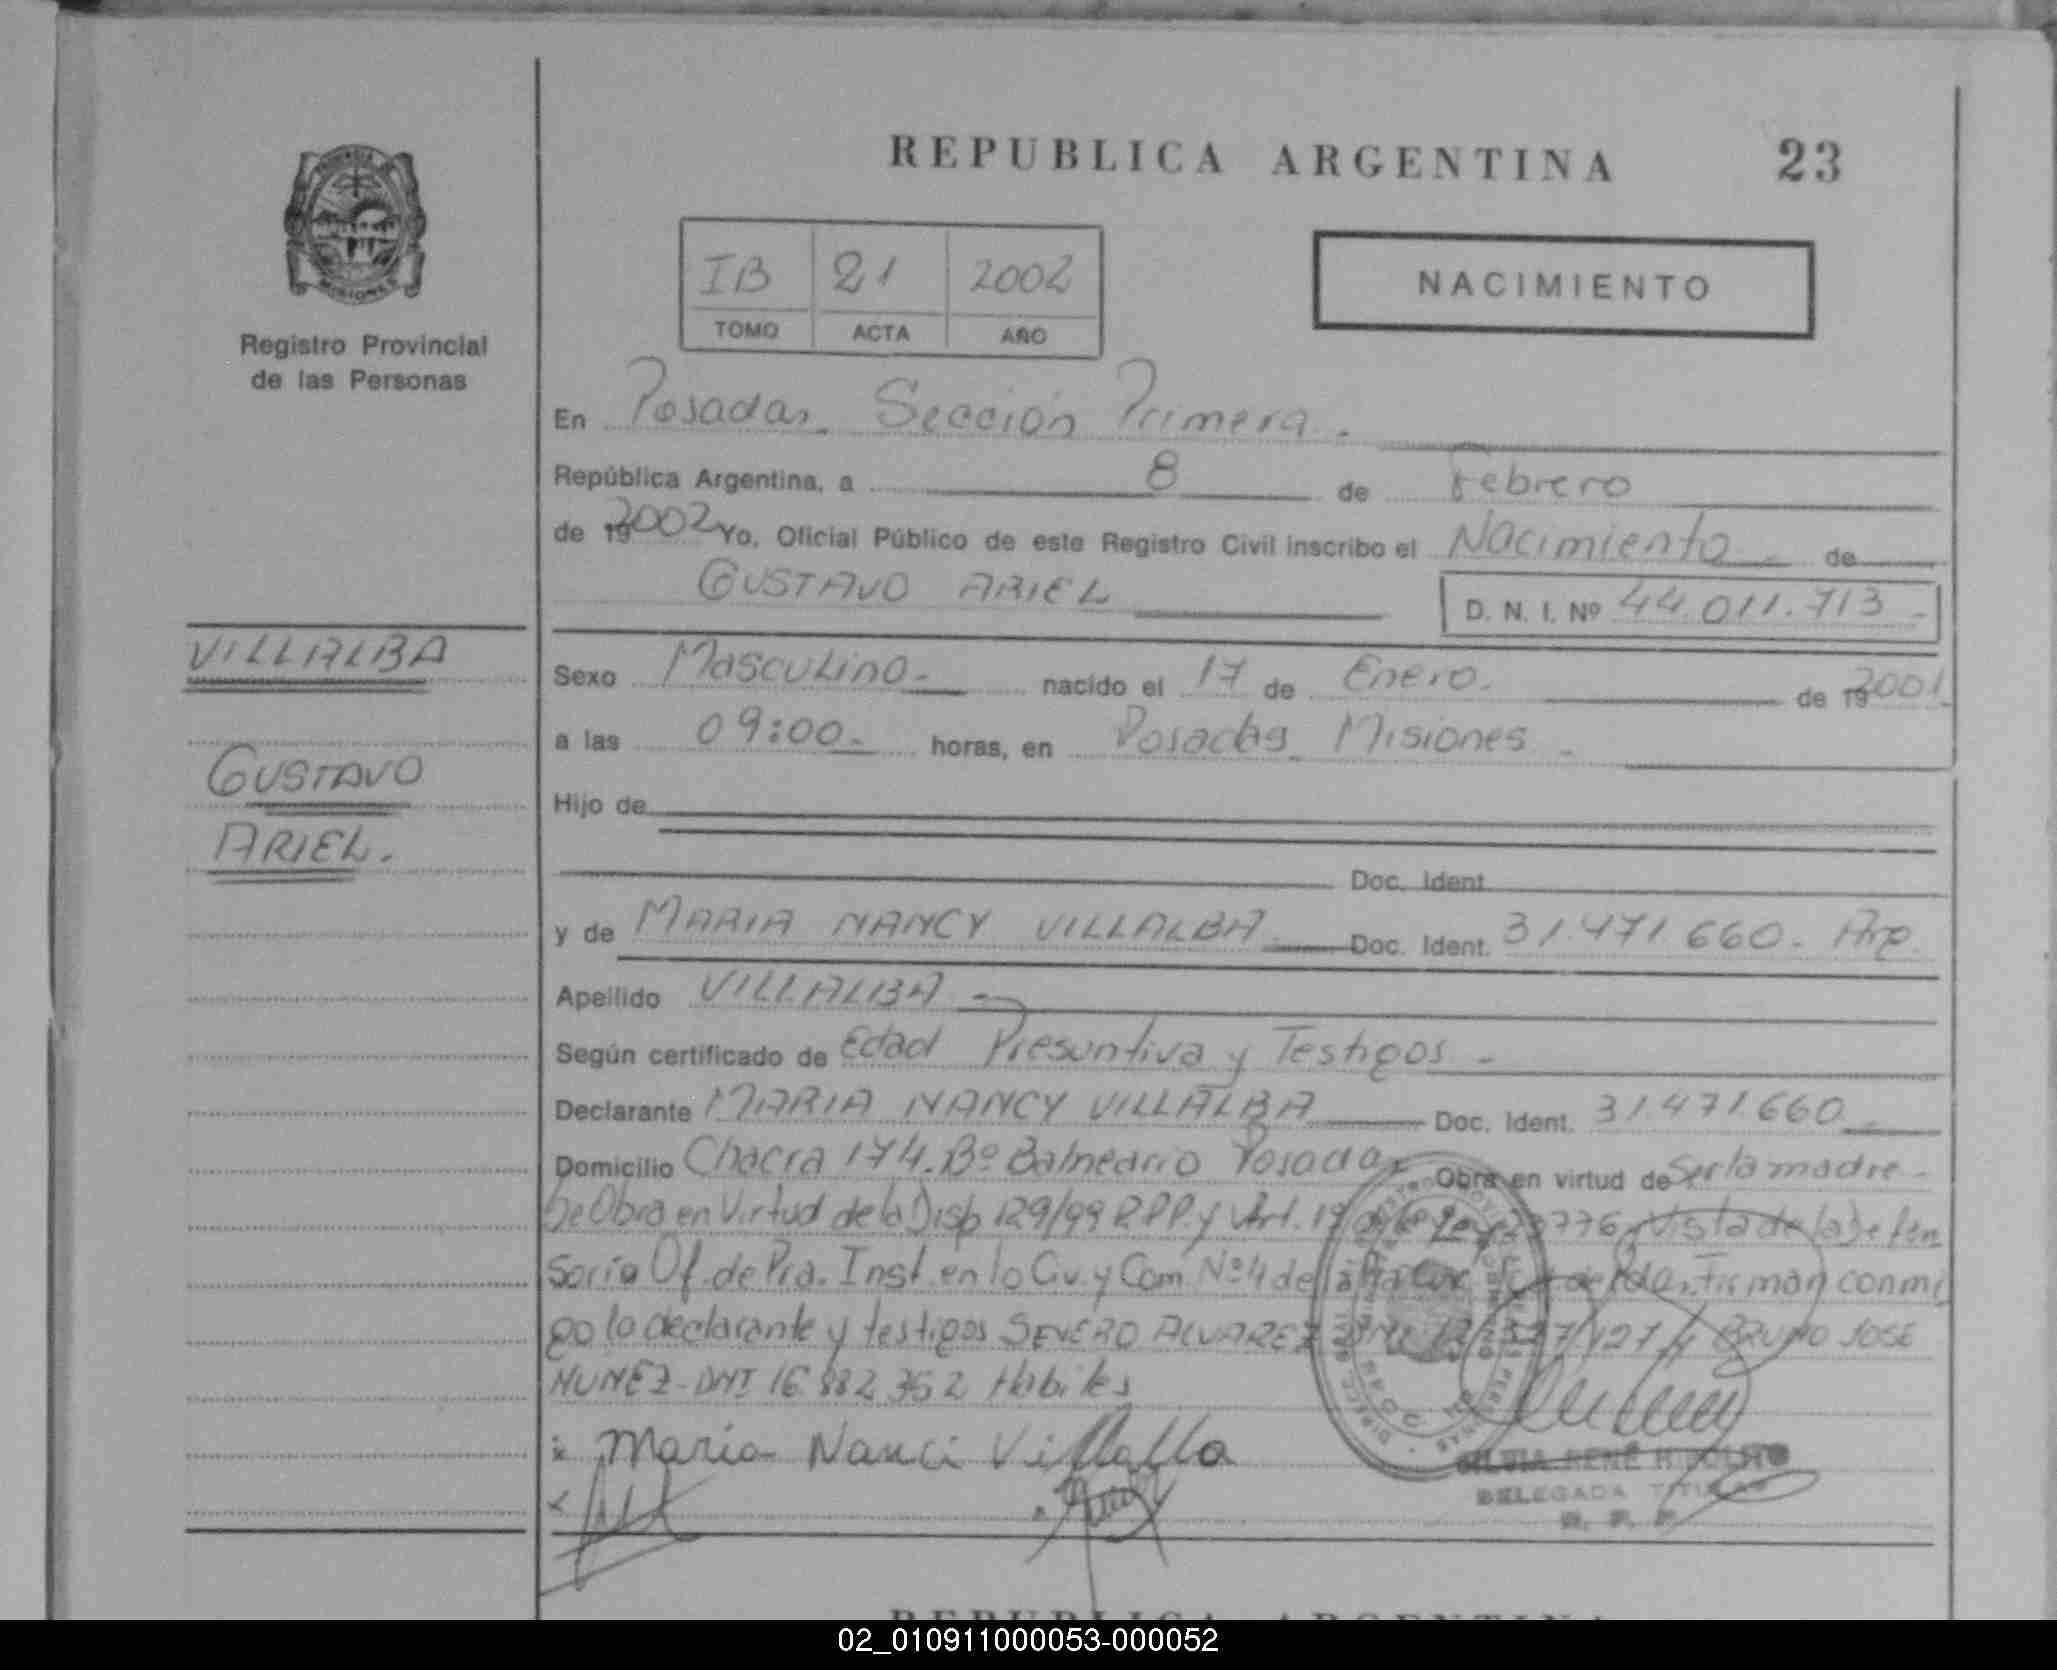 REPUBLICA ARGENTINA 23
MISIONES
Registro Provincial
de las Personas
IB 21 2002
TOMO ACTA AÑO
NACIMIENTO
En Posadas. Sección Primera.
República Argentina, a 8 de Febrero
de 19 2002 Yo, Oficial Público de este Registro Civil inscribo el Nacimiento de
GUSTAVO ARIEL D. N. I. Nº 44.011.713
VILLALBA
GUSTAVO
ARIEL.
Sexo Masculino. nacido el 17 de Enero. de 19 2001
a las 09:00. horas, en Posadas Misiones
Hijo de
Doc. Ident.
y de MARIA NANCY VILLALBA Doc. Ident. 31.471.660. Arg.
Apellido VILLALBA
Según certificado de Edad Presuntiva y Testigos
Declarante MARIA NANCY VILLALBA Doc. Ident. 31.471.660
Domicilio Chacra 174. Bº Balneario Posadas Obra en virtud de Ser la madre
Se Obra en Virtud de la Disp 129/99 R.P.P. y Art. Vista de la Defen
soria Of. de Pra. Inst. en lo Civ. y Com. Nº 4 de la Firman conmi
go la declarante y testigos SEVERO ALVAREZ BRUNO JOSE
NUÑEZ - DNI 16.882.352 Habiles
Maria Nanci Villalba
SILVIA RENÉ HIPOLITO
DELEGADA TITULAR
R. P. P.
REPUBLICA ARGENTINA
02_010911000053-000052